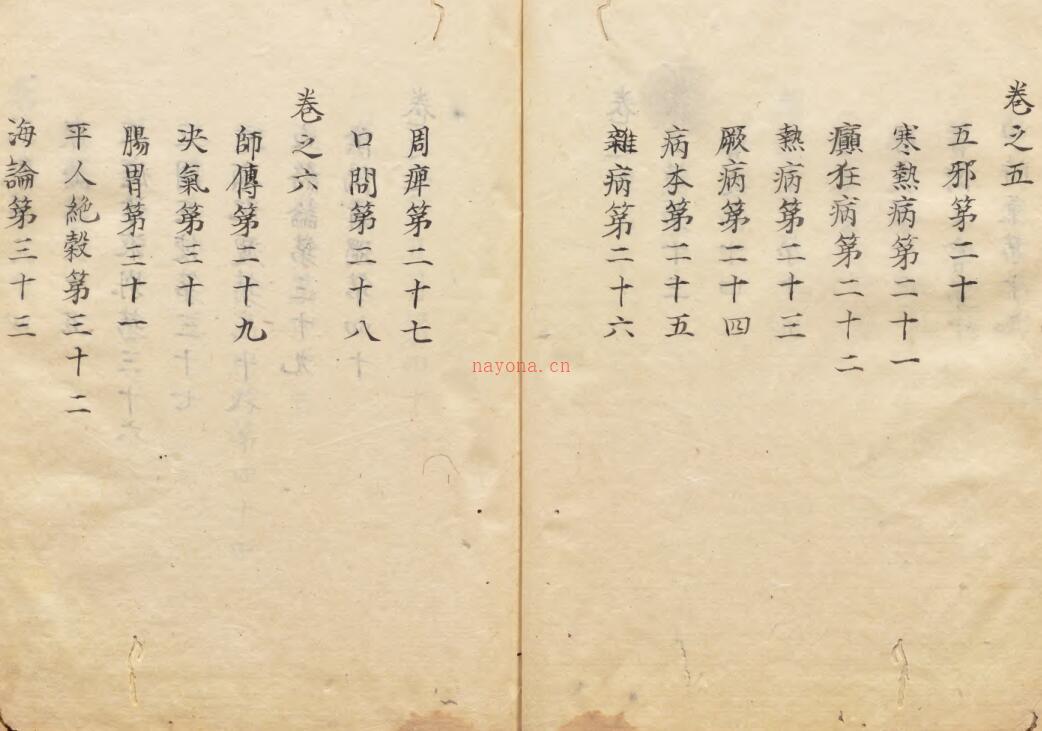 卷之五
五邪第二十
寒熱病第二十一
癲狂病第二十二
熱病第二十三
厥病第二十四
病本第二十五
雜病第二十六
周痺第二十七
口問第二十八
卷之六
師傳第二十九
决氣第三十
腸胃第三十一
平人絶穀第三十二
海論第三十三
nayona.cn